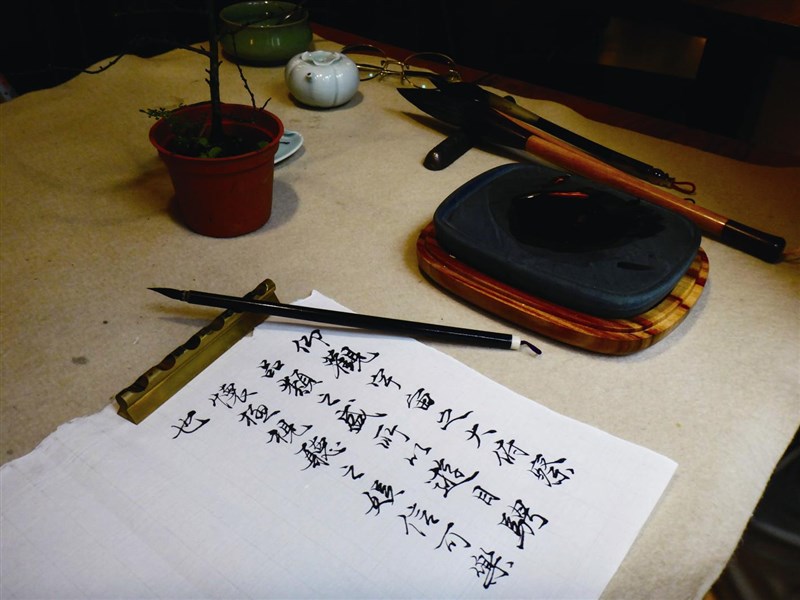 仰觀宇宙之大府察
品類之盛所以遊目騁
懷極視聽之娛信可樂
也